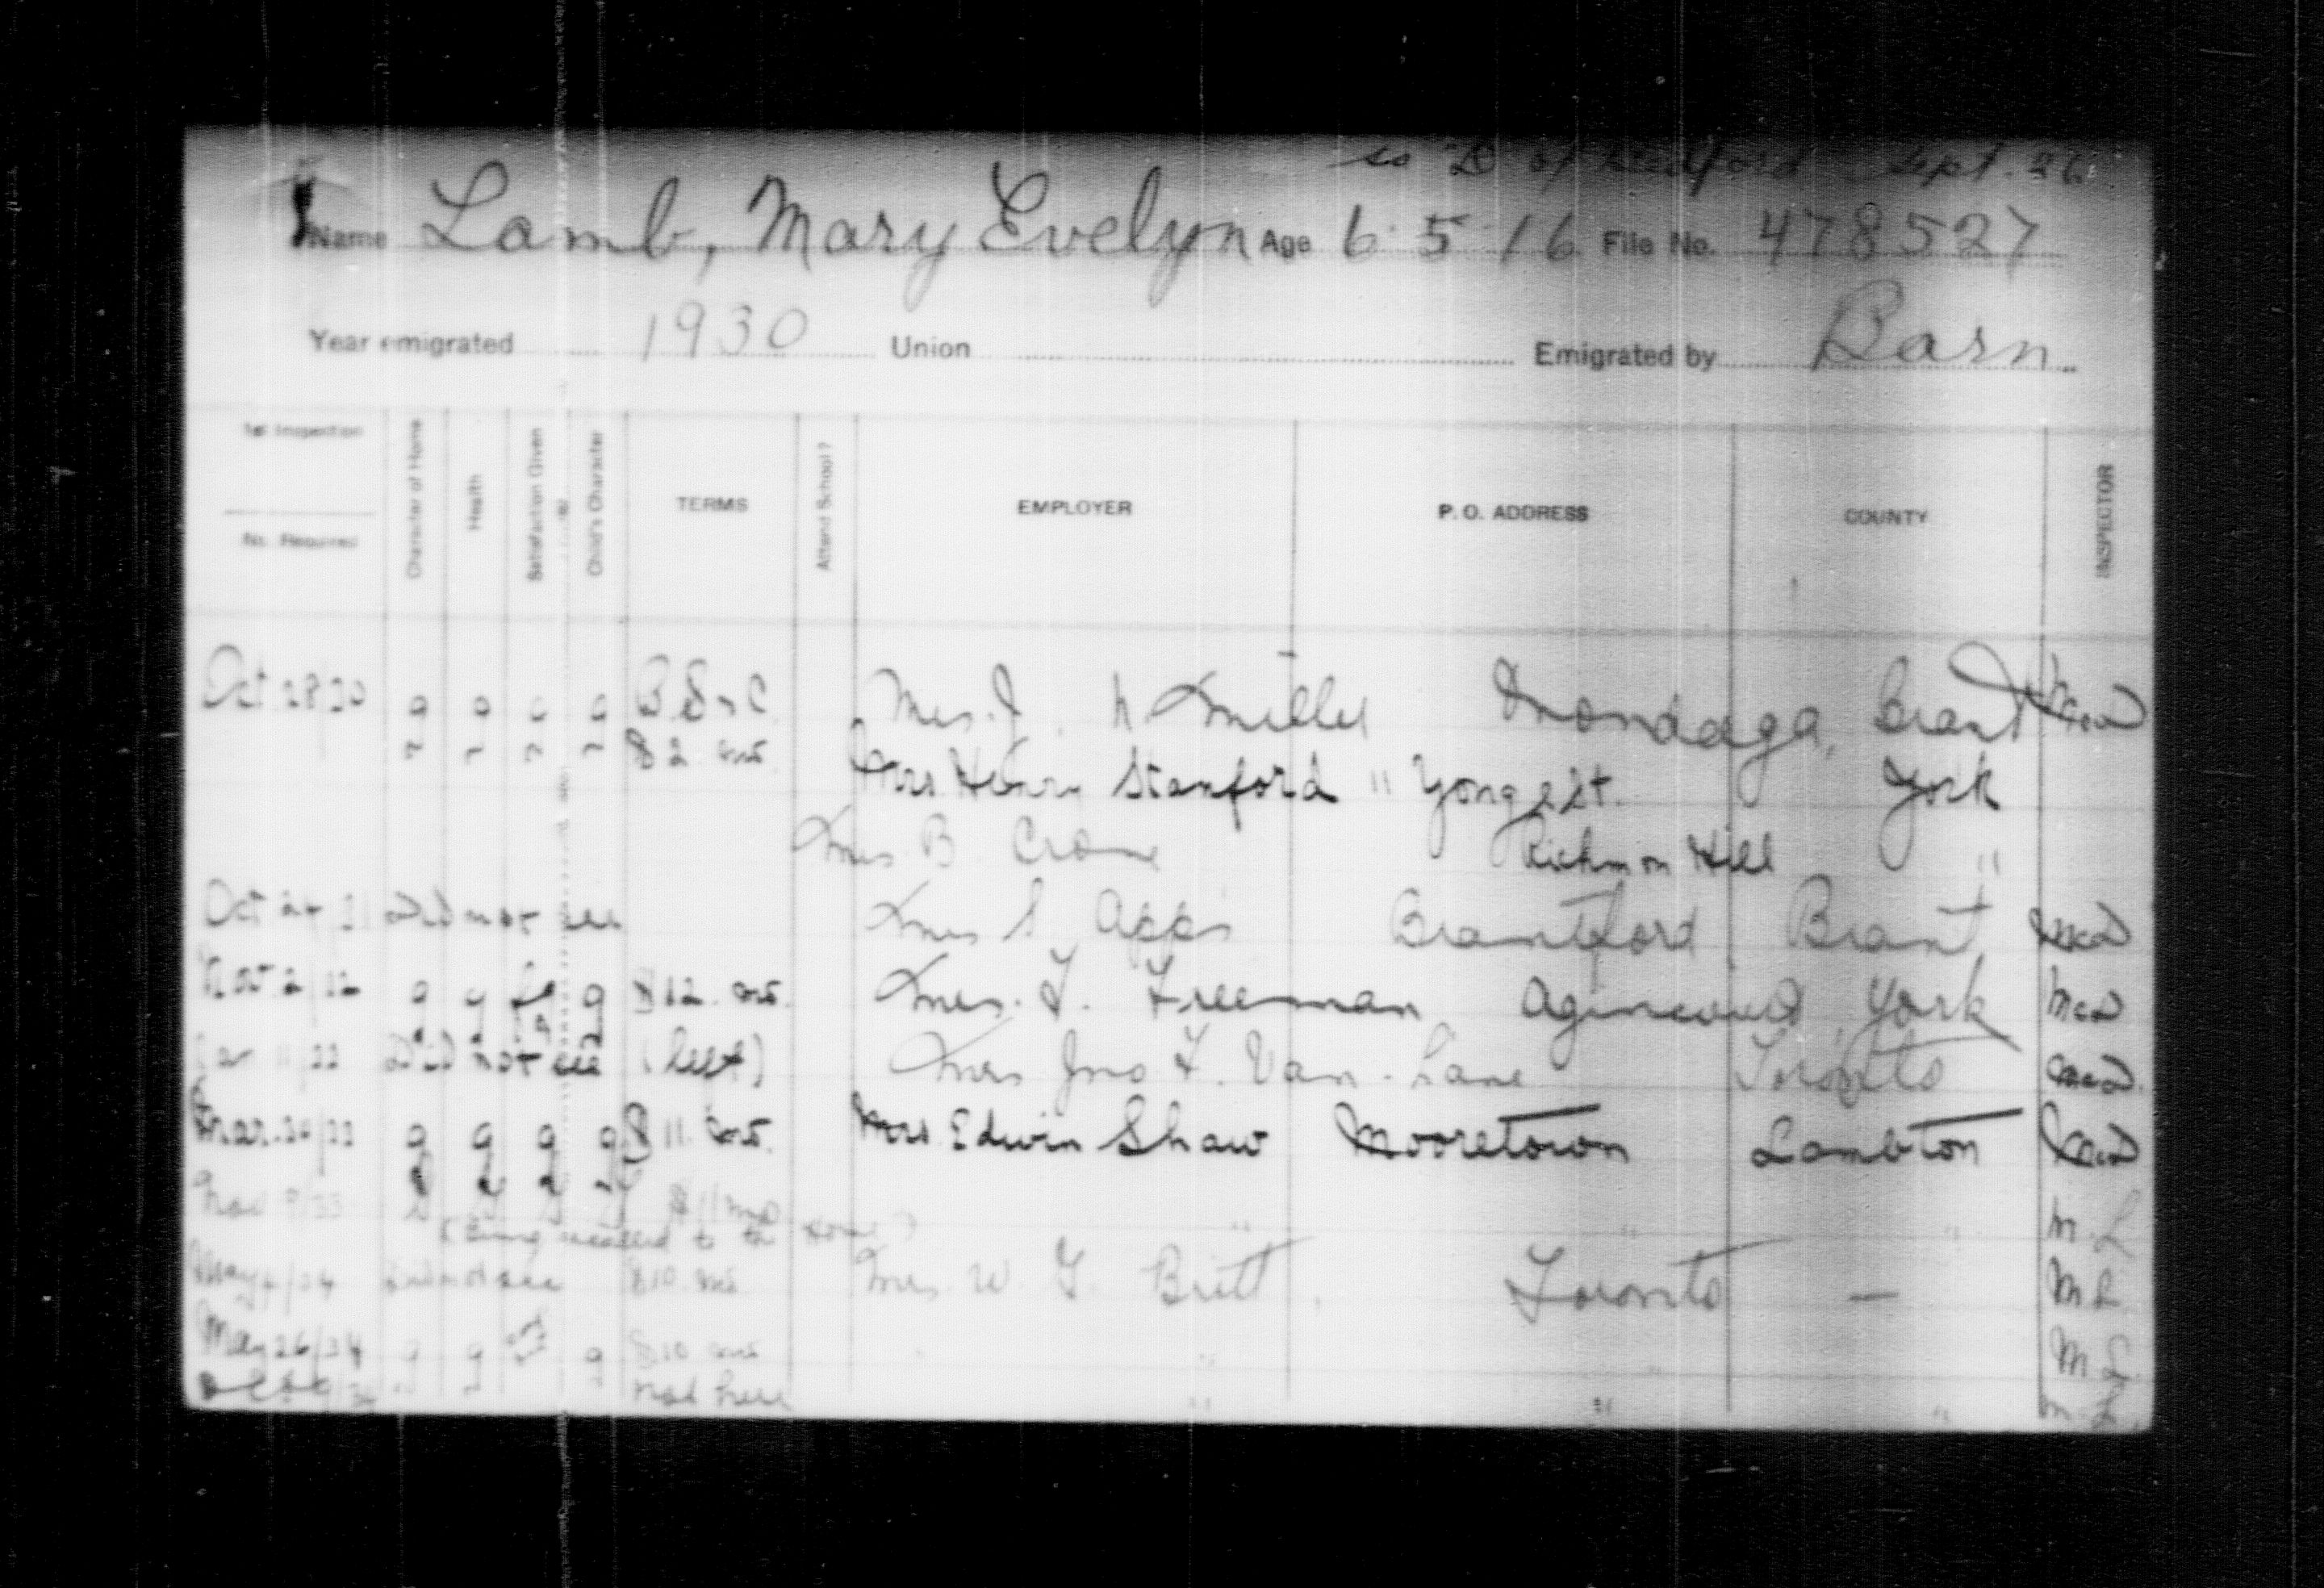 SS "D of Bedford Sept. 26
Name Lamb, Mary Evelyn Age 6 5 16 File No. 478527
Year emigrated 1930 Union Emigrated by Barn
1st Inspection
No. Required
Character of Home
Health
Satisfaction Given
Child's Character
TERMS
Attend School?
EMPLOYER
P. O. ADDRESS
COUNTY
INSPECTOR
Oct 28/30 g g g g B. & C. Mrs. J. N. Miller Brant McD
$2 mo. Mrs Henry Stanford " Yonge St. York
Mrs B. Crone Richmon Hill "
Oct 24 31 Did not see Mrs S. Apps Brantford Brant McD
Nov 2/32 g g g $12. mo. Mrs. F. Freeman Agincourt York McD
11/33 Did not see (left) Mrs Jno F. Van. Lane Toronto McD.
Mar. 20/33 g g g g $11 mo. Mrs Edwin Shaw Mooretown Lambton McD
Nov 9/33 g g g g $11 mo " " " M. L
(Being recalled to the Home)
May /34 Did not see $10 mo. Mrs. W. F. Britt. Toronto — M L
May 26/34 g g g $10 mo " " M. L
Not here " " " M. L.